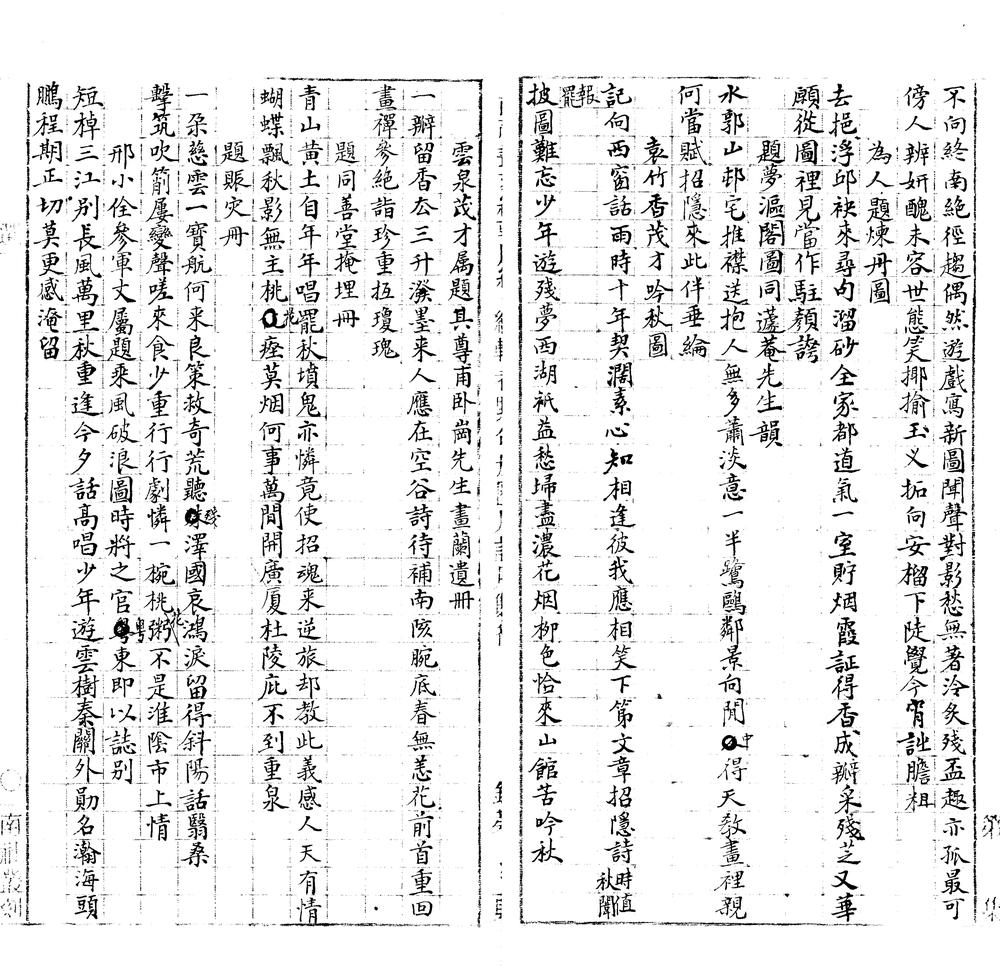 不向終南絕徑趨偶然遊戲寫新圖聞聲對影愁無著冷炙殘盃趣亦孤最可
傍人辨妍醜未容世態笑揶揄玉乂拓向安榴下陡覺今宵詘膽粗
為人題煉丹圖
去挹浮邱袂來尋勾溜砂全家都道氣一室貯烟霞証得香成瓣采殘芝又華
願從圖裡見當作駐顏誇
題夢漚閣圖同蘧菴先生韻
水郭山邨宅推襟送抱人無多蕭淡意一半鷺鷗鄰景向閒中得天敎畫裡親
何當賦招隱來此伴垂綸
袁竹香茂才吟秋圖
記向西窗話雨時十年契濶素心知相逢彼我應相笑下第文章招隱詩時值秋闈
報罷
披圖難忘少年遊殘夢西湖衹益愁埽盡濃花烟柳色恰來山館苦吟秋
雲泉茂才属題其尊甫卧崗先生畫蘭遺冊
一瓣留香厺三升潑墨来人應在空谷詩待補南陔腕底春無恙花前首重回
畫禪參絕詣珍重抵瓊瑰
題同善堂掩埋冊
青山黄土自年年唱罷秋墳鬼亦憐竟使招魂来逆旅却教此義感人天有情
蝴蝶飄秋影無主桃花瘞莫烟何事萬間開廣厦杜陵庇不到重泉
題賑灾冊
一朶慈雲一寶航何来良策救奇荒聽殘澤國哀鴻淚留得斜陽話翳桑
擊筑吹簫屢變聲嗟來食少重行行劇憐一椀桃花粥不是淮陰市上情
邢小佺參軍丈屬題乘風破浪圖時將之官粤東即以誌别
短棹三江别長風萬里秋重逢今夕話高唱少年遊雲樹秦關外勛名瀚海頭
鵬程期正切莫更感淹留
南社叢刻